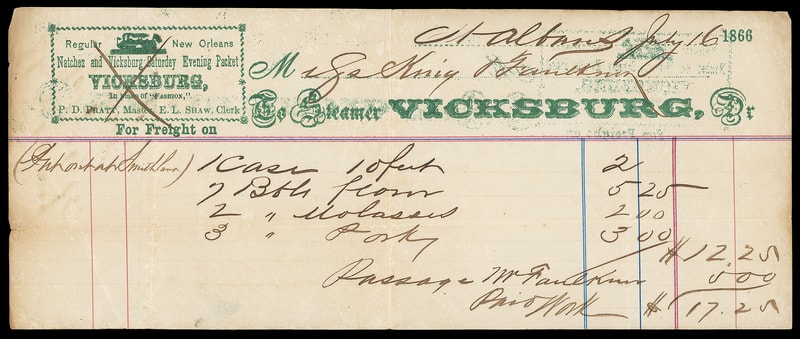 Regular New Orleans
Natchez and Vicksburg Saturday Evening Packet
VICKSBURG,
In place of "Fashion,"
P. D. PRATT, Master, E. L. SHAW, Clerk
For Freight on
St Albans July 16 1866
M King & Faulkner
To Steamer VICKSBURG, Dr
(Put out at Smithland) 1 Case 10 feet 2
7 Bbls flour 5 25
2 " Molasses 2 00
3 " Pork 3 00
$12.25
Passage Mr Faulkner 5 00
Paid Work $17.25